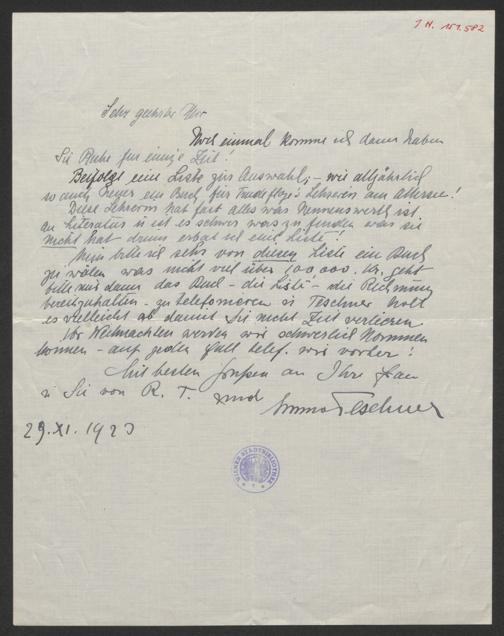 J.N. 151.582
Sehr geehrter Herr
Noch einmal komme ich dann haben
Sie Ruhe für einige Zeit!
Beifolge eine Liste zur Auswahl, – wie alljährlich
so auch heuer ein Buch für Lehrerin am Attersee!
Diese Lehrerin hat fast alles was Nennenswerth ist
an Literatur u ist es schwer was zu finden was sie
nicht hat drum erbat ich eine Liste!
Nun bitte ich sehr von dieser Liste ein Buch
zu wälen was nicht viel über 100.000. Kr. geht
bitte nur dann das Buch – die Liste – die Rechnung
bereitzuhalten – zu telefonieren u Teschner holt
es vielleicht ab damit Sie nicht Zeit verlieren
Vor Weihnachten werden wir schwerlich kommen
können – auf jeden Fall telef. wir vorher!
Mit besten Grüßen an Ihre Frau
u Sie von R. T. und
Emma Teschner
29.XI.1923
WIENER STADTBIBLIOTHEK